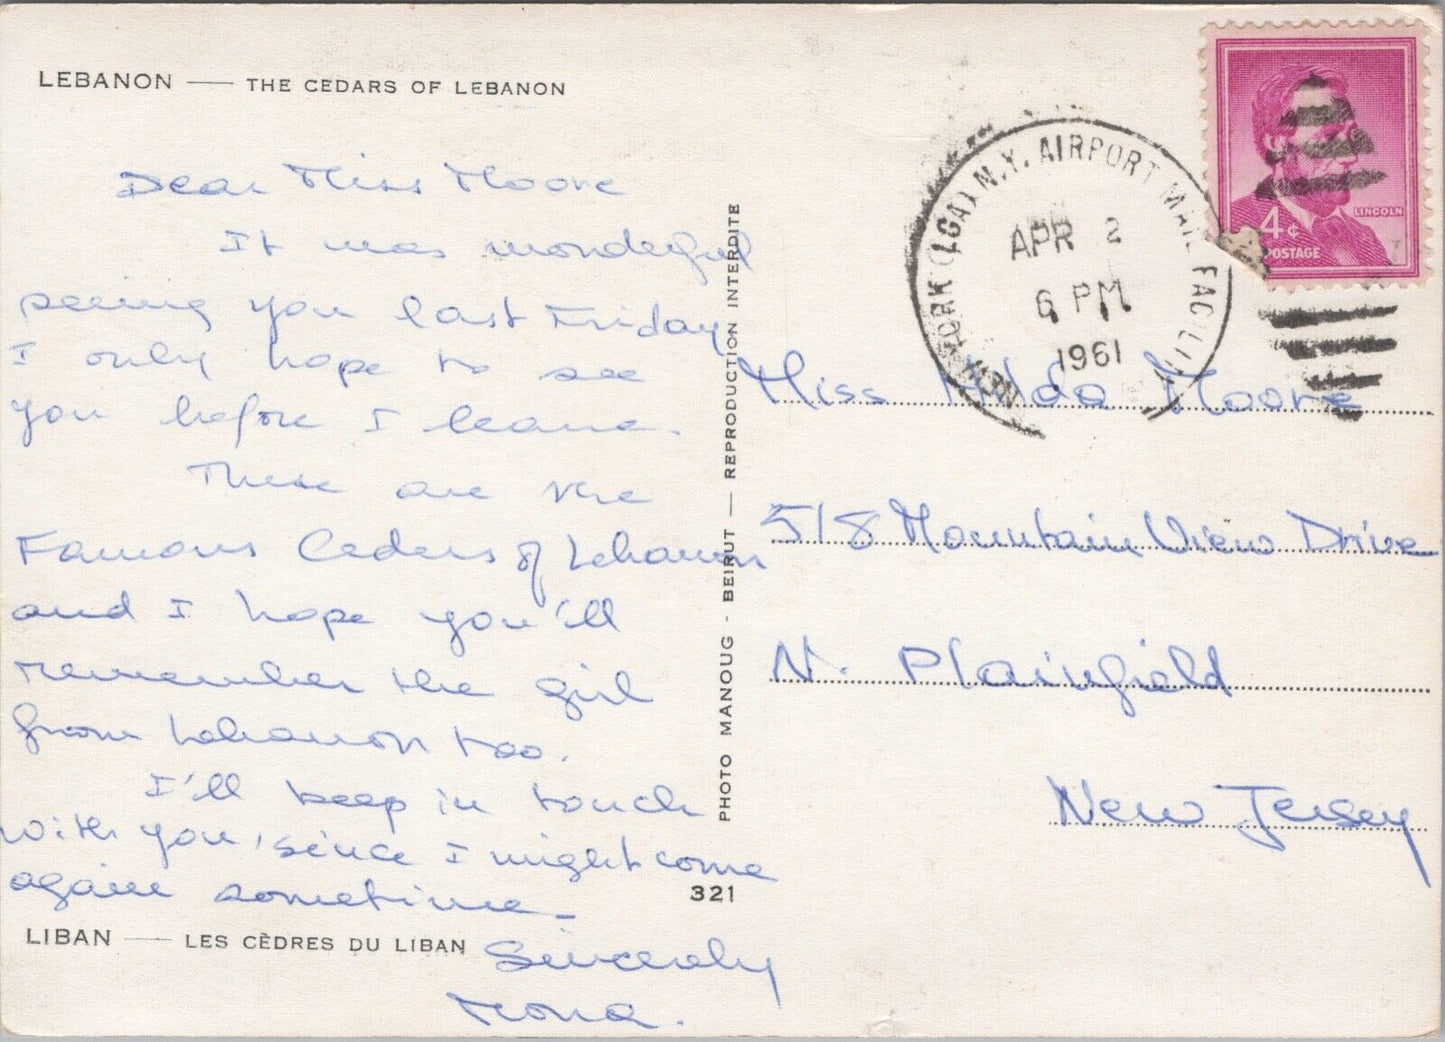 LEBANON — THE CEDARS OF LEBANON
Dear Miss Moore
It was wonderful
seeing you last Friday
I only hope to see
you before I leave.
These are the
Famous Ceders of Lebanon
and I hope you'll
remember the girl
from Lebanon too.
I'll keep in touch
with you, since I might come
again sometime_
Sincerely
Mona.
LIBAN — LES CÈDRES DU LIBAN
321
PHOTO MANOUG - BEIRUT — REPRODUCTION INTERDITE
NEW YORK (LGA) N.Y. AIRPORT MAIL FACILITY
APR 2
6 PM
1961
LINCOLN
4¢
POSTAGE
Miss Hilda Moore
518 Mountain View Drive
N. Plainfield
New Jersey